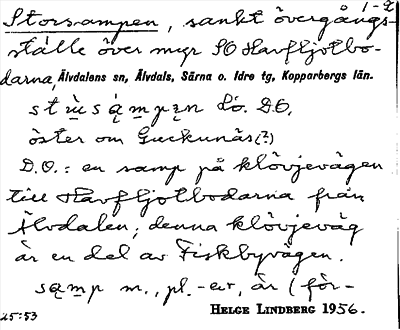 1-2
Storsampen, sankt övergångs-
ställe över myr SO Harfljotbo-
darna, Älvdalens sn, Älvdals, Särna o. Idre tg, Kopparbergs län.
Lo. D.O,
öster om Guckunäs(?)
D.O.: en samp på klövjevägen
till Harfljotbodarna från
Älvdalen; denna klövjeväg
är en del av Fiskbyvägen.
sąmp m., pl. -er, är (för-
25:53 HELGE LINDBERG 1956.